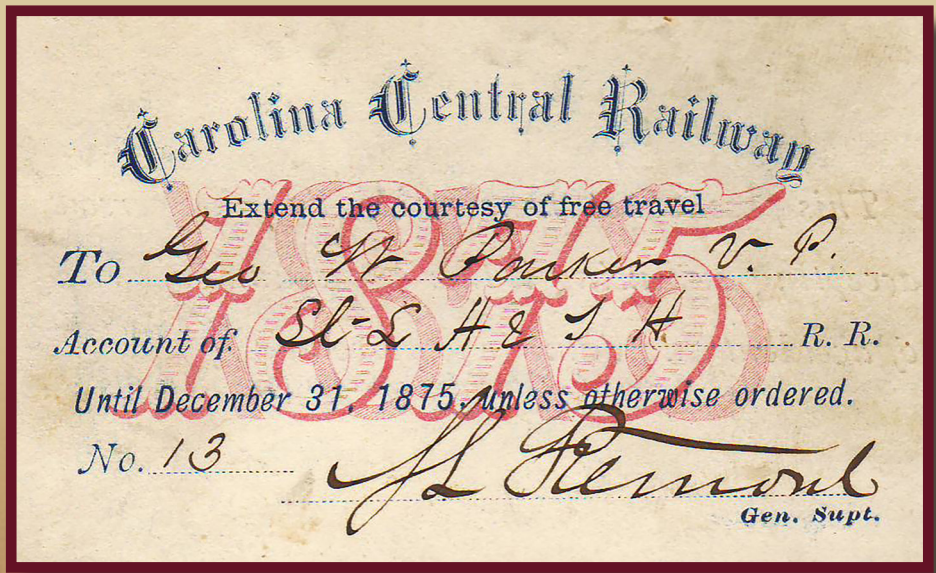 Carolina Central Railway
1875
Extend the courtesy of free travel
To Geo W Parker V. P.
Account of St L A & T H R. R.
Until December 31, 1875, unless otherwise ordered.
No. 13
S L Fremont
Gen. Supt.